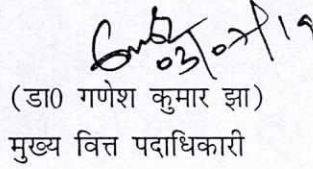 03/07/19
(डा0 गणेश कुमार झा)
मुख्य वित्त पदाधिकारी